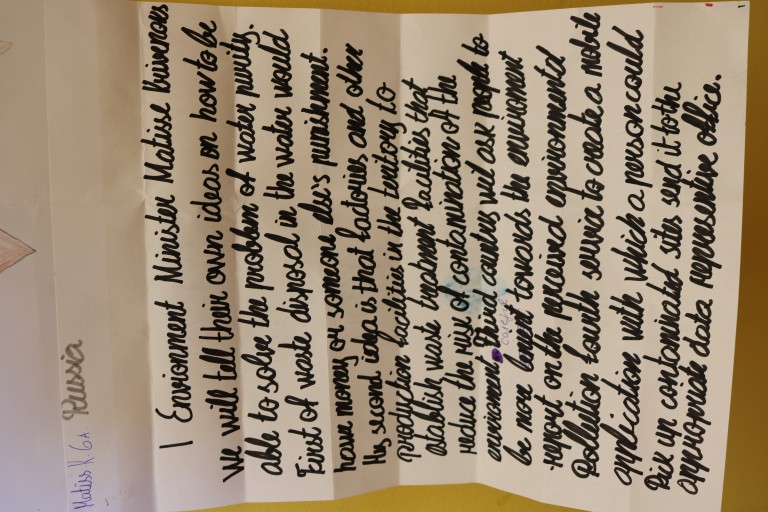 Matiss K. 6A.
Russia
I Envionment Minister Matisse Krivenoks
We will tell their own ideas on how to be
able to solve the problem of water purity.
First of waste disposal in the water would
have money or someone else's punishment.
My second idea is that factories and other
production facilities in the territory to
establish waste treatment facilities that
reduce the risk of contamination of the
enviroment. Third countries will ask people to
careful
be more lenient towards the enviroment
report on the perceived environmental
Pollution fourth service to create a mobile
application with which a person could
Pick up contaminated sites send it to the
appropriate data representive office.